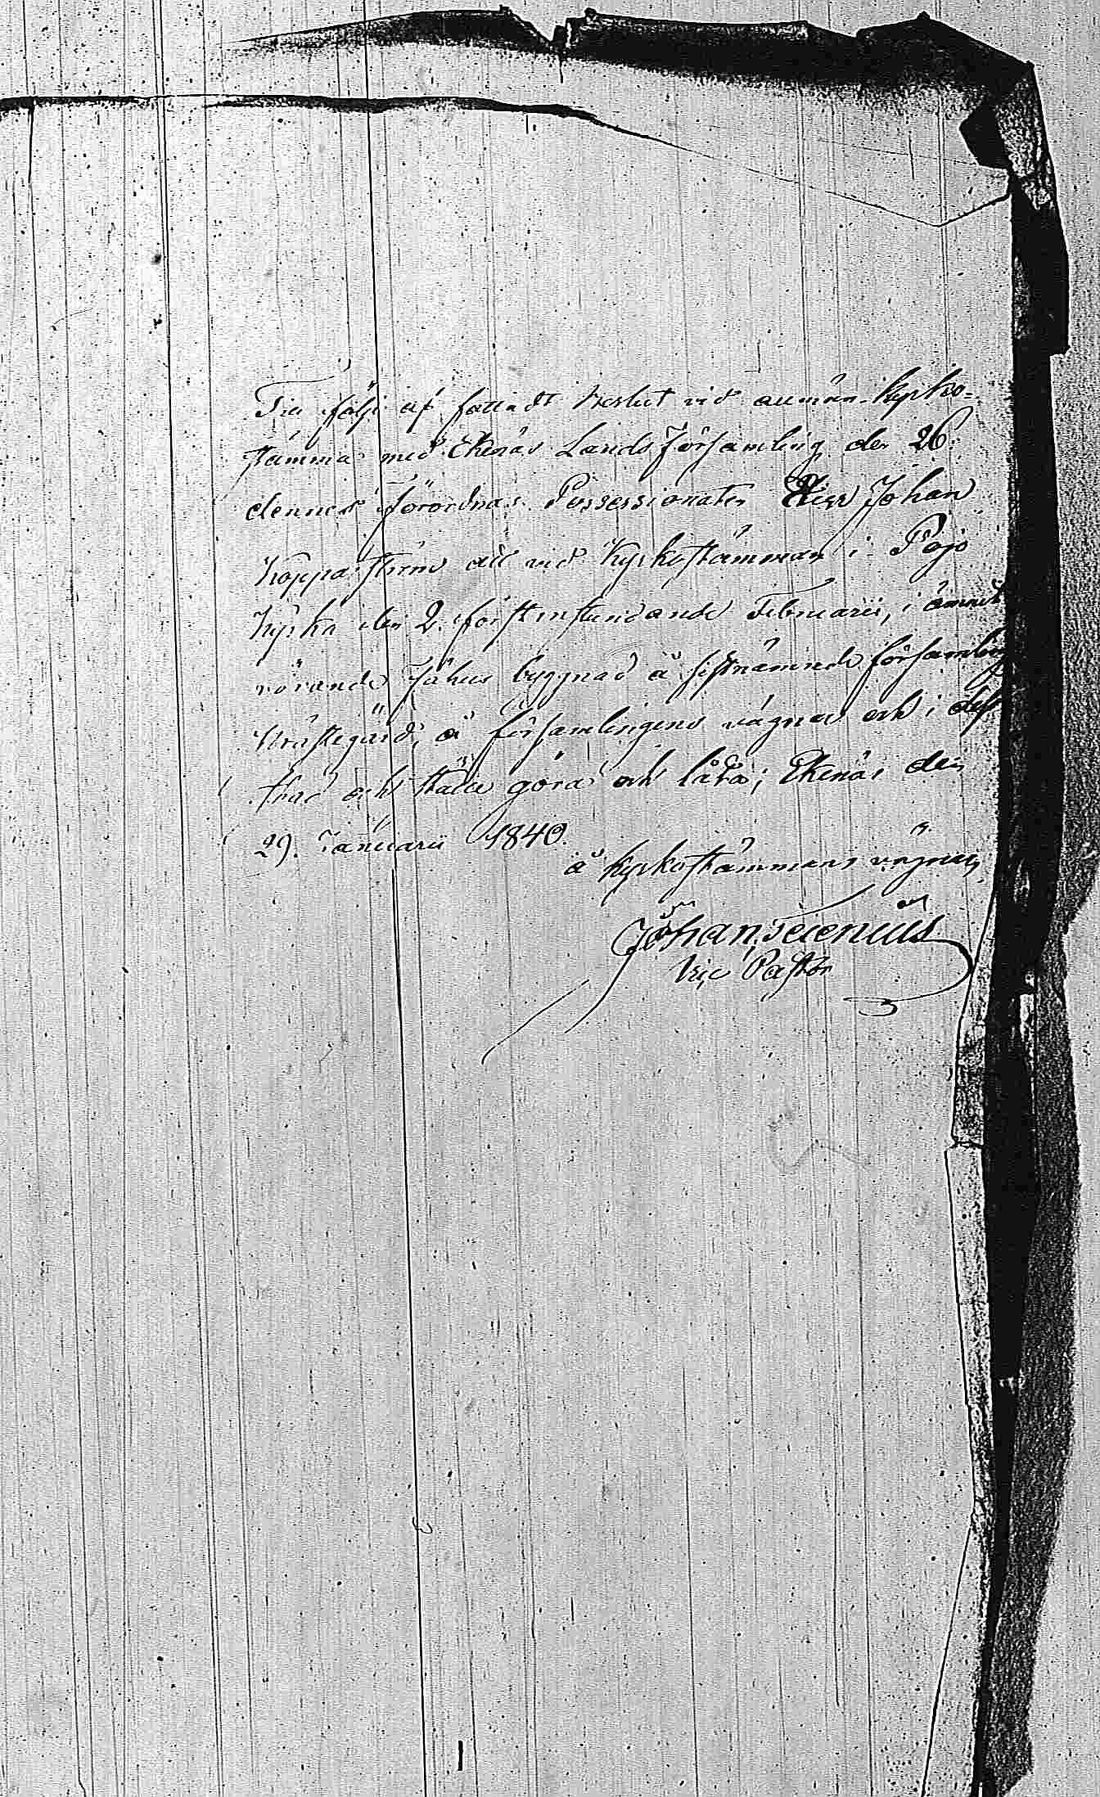 Till följe af fattadt beslut vid allmän Kyrko-
stämma med Ekenäs Lands Församling den 26
dennes förordnas Possessionaten Herr Johan
Koppaström att vid Kyrkostämman i Pojo
Kyrka den 2. förstinstundande Februarii, i ämnet
rörande Fähus byggnad å sistnämnde församlings
Prästegård, å församlingens vägnar och i dess
stad och ställe göra och låta; Ekenäs den
29. Januarii 1840.
å Kyrkostämmans vägnar,
Johan
Vic Pastor